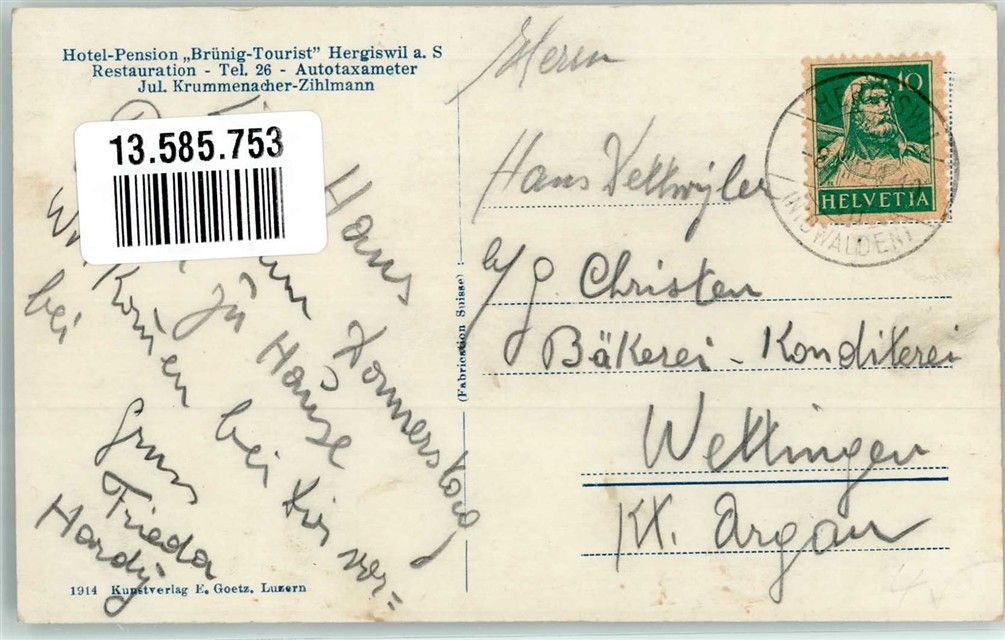 Hotel-Pension „Brünig-Tourist" Hergiswil a. S
Restauration - Tel. 26 - Autotaxameter
Jul. Krummenacher-Zihlmann
13.585.753
Hans
Donnerstag
zu Hause
Wir Könen bei Dir vor=
bei
Gruss
Frieda
Hardÿ
1914 Kunstverlag E. Goetz, Luzern
(Fabrication Suisse)
Herrn
Hans Dettwÿler
b/g. Christen
Bäkerei - Konditerei
Wettingen
Kt. Argau
10
HELVETIA
HERGISWIL
(NIDWALDEN)